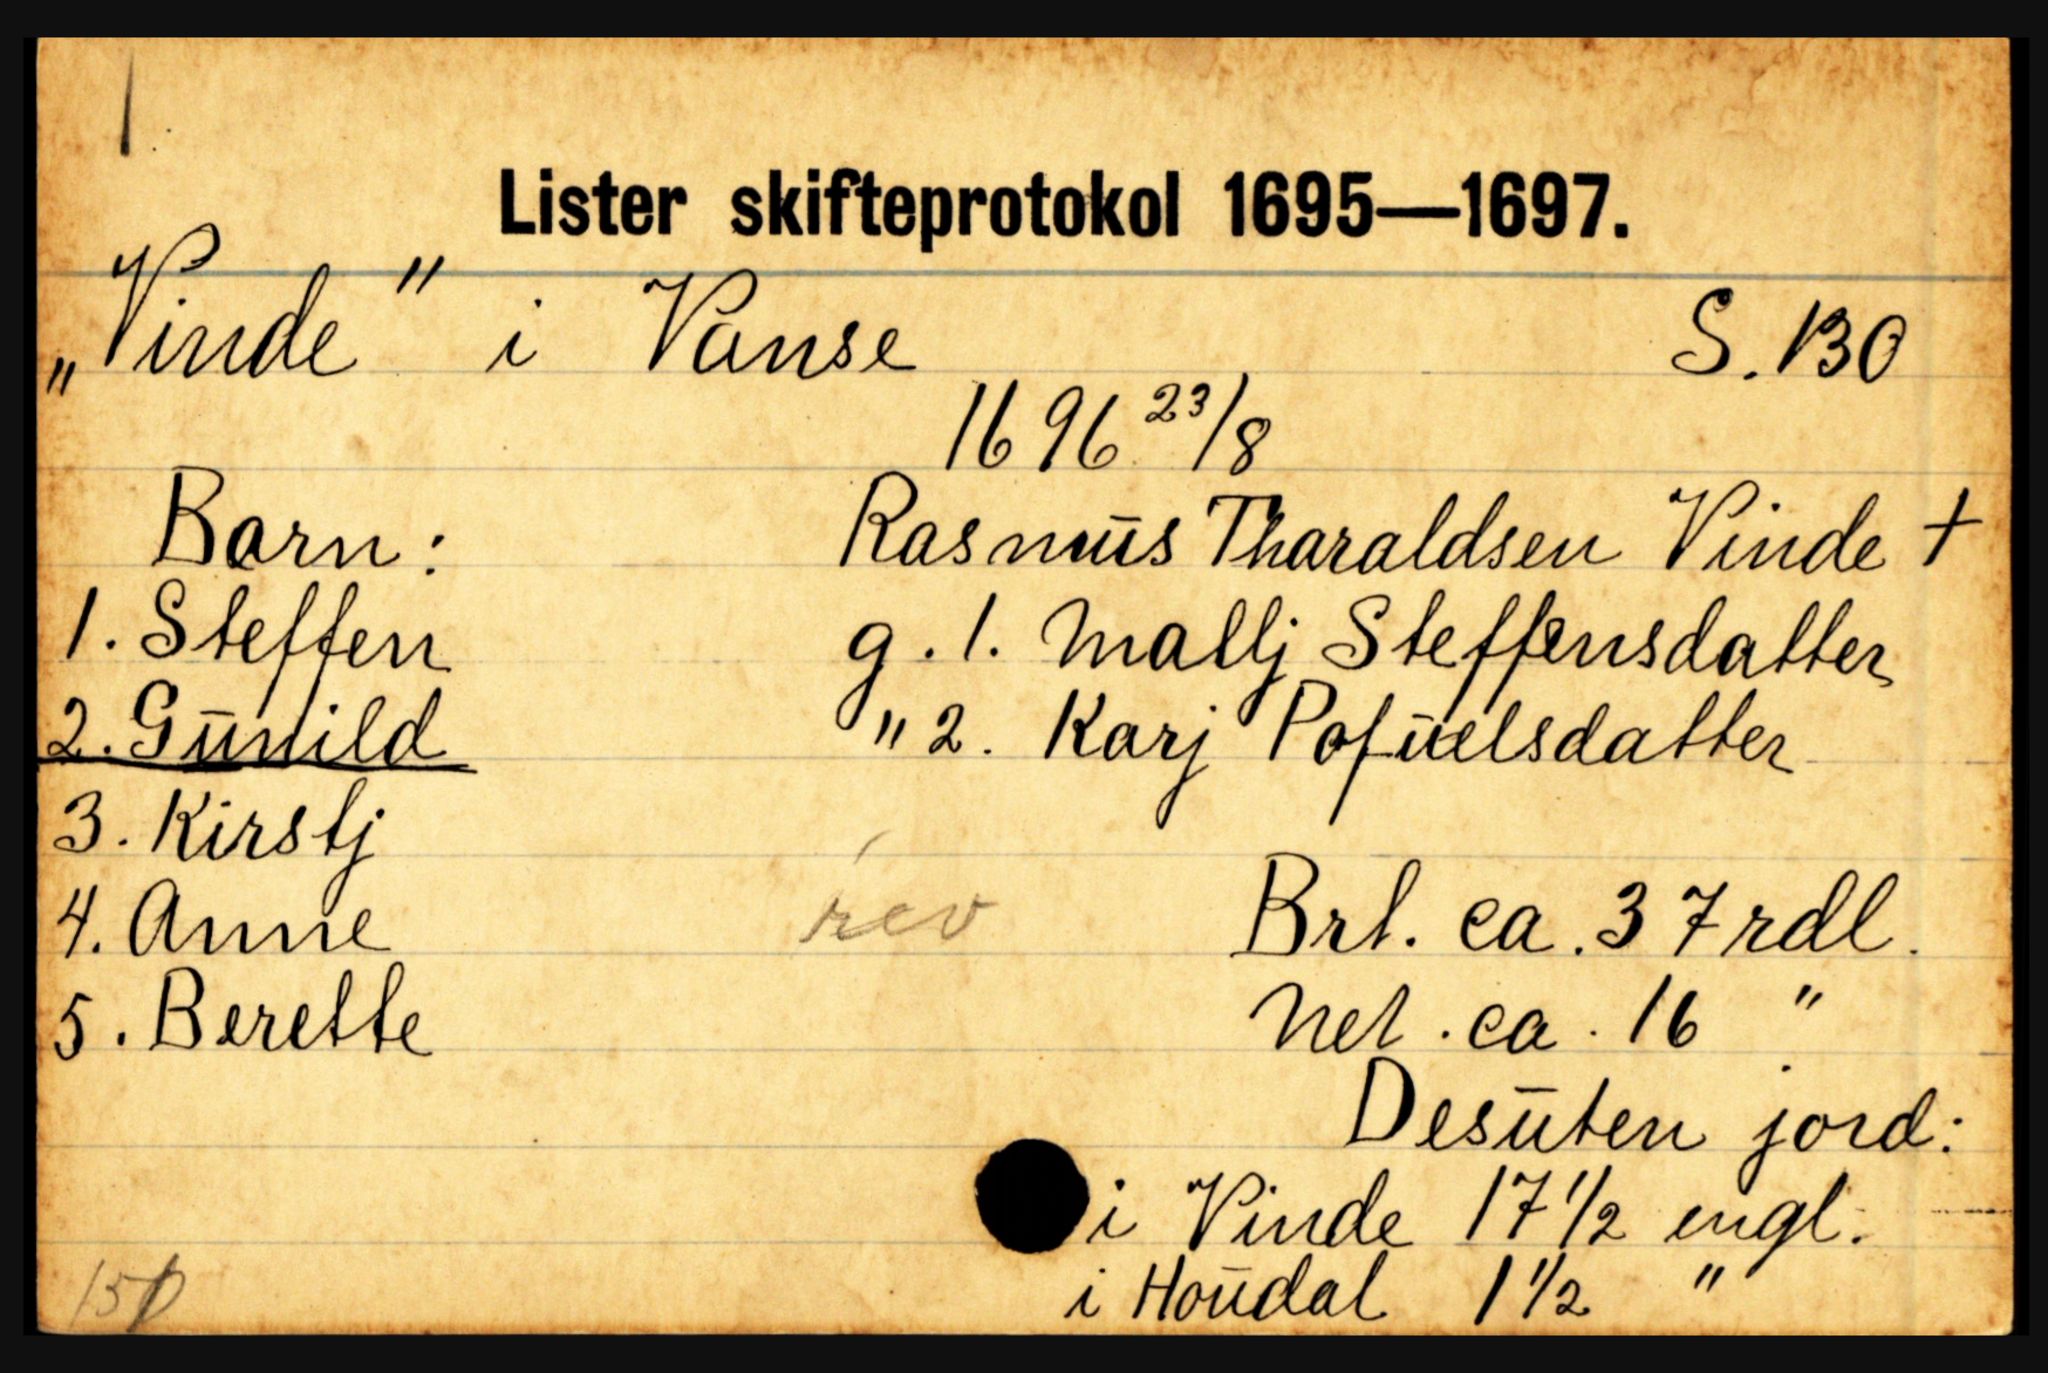 Lister skifteprotokol 1695—1697.
„Vinde" i Vanse S. 130
1696 23/8
Barn: Rasmūs Tharaldsen Vinde +
1. Steffen g. 1. Mallj Steffensdatter
2. Gūnild " 2. Karj Pofūelsdatter
3. Kirstj
4. Anne rev Brt. ca. 37 rdl.
5. Berette Net. ca. 16 "
Desūten jord:
i Vinde 17 1/2 engl.
i Hoūdal 1 1/2 "